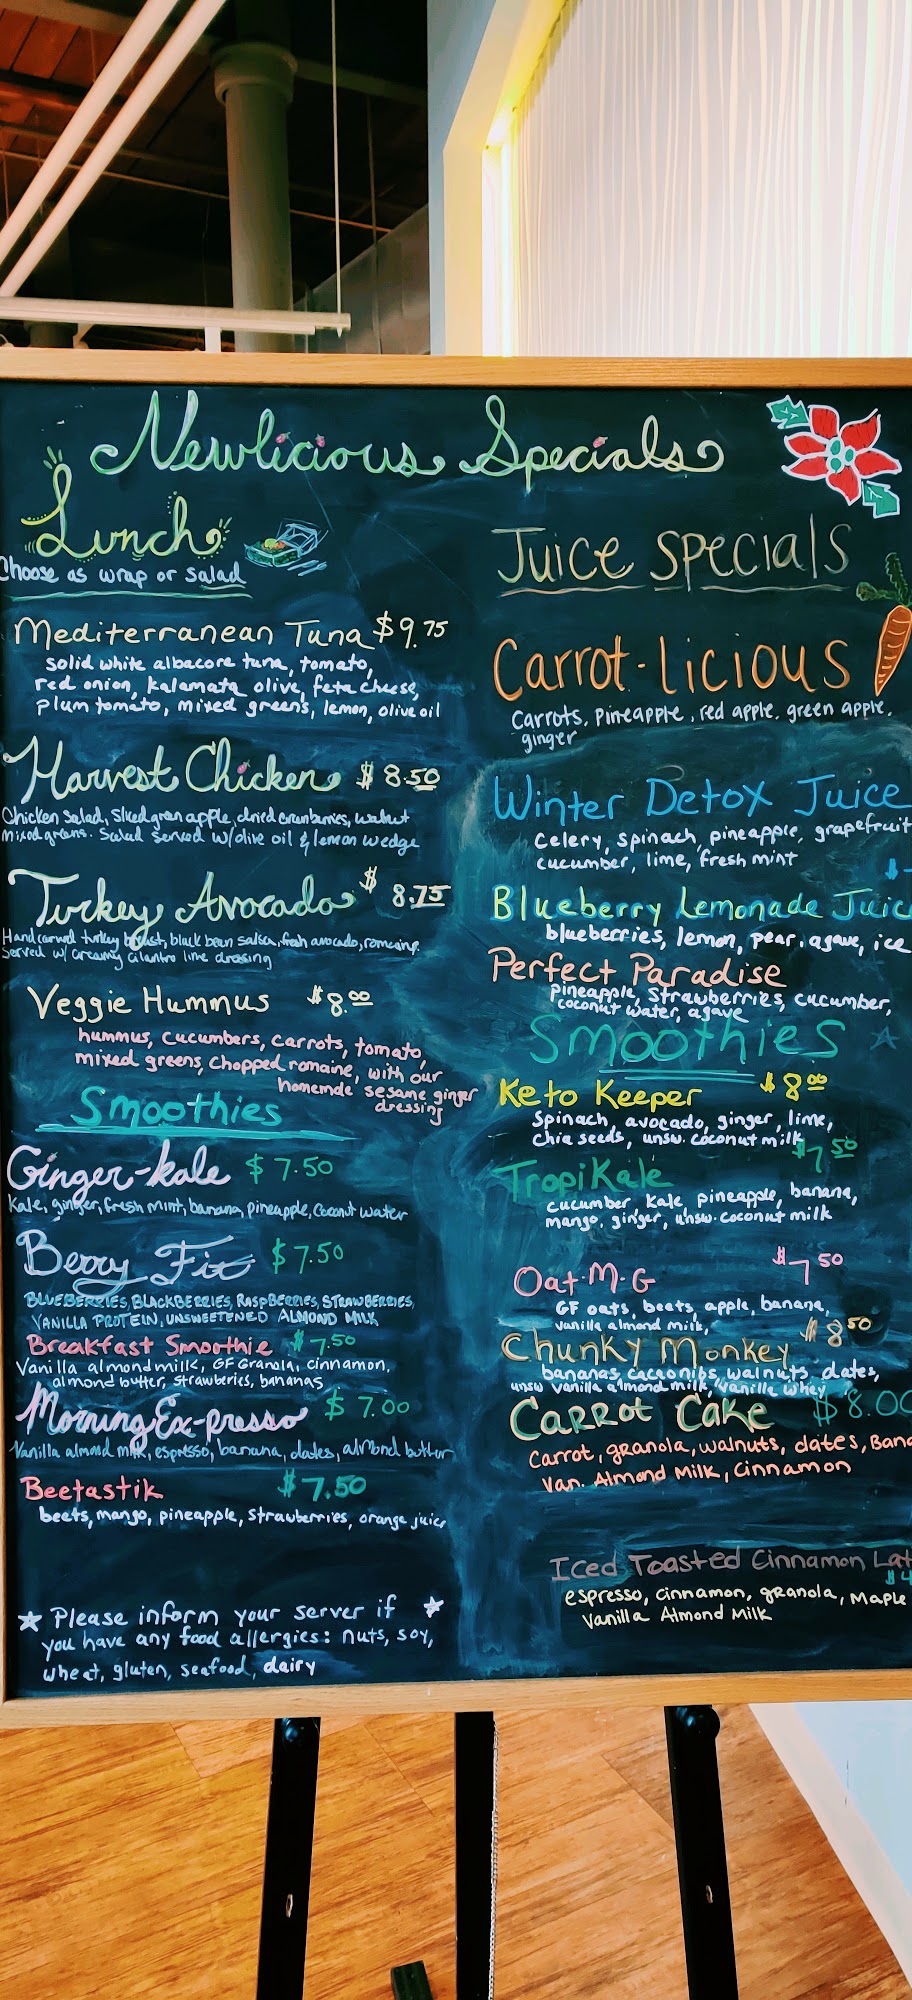 Newlicious Specials
Lunch
Choose as wrap or salad
Mediterranean Tuna $9.75
solid white albacore tuna, tomato,
red onion, kalamata olive, feta cheese,
plum tomato, mixed greens, lemon, olive oil
Harvest Chicken $8.50
Chicken Salad, Sliced green apple, dried cranberries, walnut
mixed greens. Salad served w/olive oil & lemon wedge
Turkey Avocado $8.75
Hand carved turkey breast, black bean salsa, fresh avocado, romaine,
Served w/ creamy cilantro lime dressing
Veggie Hummus $8.00
hummus, cucumbers, carrots, tomato,
mixed greens, chopped romaine, with our
homemde sesame ginger
dressing
Smoothies
Ginger-kale $7.50
Kale, ginger, fresh mint, banana, pineapple, Coconut water
Berry Fit $7.50
BLUEBERRIES, BLACKBERRIES, RASPBERRIES, STRAWBERRIES,
VANILLA PROTEIN, UNSWEETENED ALMOND MILK
Breakfast Smoothie $7.50
Vanilla almond milk, GF Granola, cinnamon,
almond butter, strawberries, bananas
Morning Ex-presso $7.00
Vanilla almond milk, espresso, banana, dates, almond butter
Beetastik $7.50
beets, mango, pineapple, strawberries, orange juice
Please inform your server if
you have any food allergies: nuts, soy,
wheat, gluten, seafood, dairy
Juice Specials
Carrot-licious
Carrots, pineapple, red apple, green apple,
ginger
Winter Detox Juice
celery, spinach, pineapple, grapefruit
cucumber, lime, fresh mint
Blueberry Lemonade Juic
blueberries, lemon, pear, agave, ice
Perfect Paradise
Pineapple, Strawberries, cucumber,
coconut water, agave
Smoothies
Keto Keeper $8.00
Spinach, avocado, ginger, lime,
chia seeds, unsw. coconut milk
TropiKale $7.50
cucumber kale, pineapple, banana,
mango, ginger, unsw. coconut milk
Oat·M·G $7.50
GF oats, beets, apple, banana,
vanilla almond milk,
Chunky Monkey $8.50
bananas, cacao nibs, walnuts, dates,
unsw vanilla almond milk, vanilla whey
Carrot Cake $8.00
Carrot, granola, walnuts, dates, Bana
Van. Almond Milk, Cinnamon
Iced Toasted Cinnamon Lat
$4
espresso, cinnamon, granola, Maple
Vanilla Almond Milk